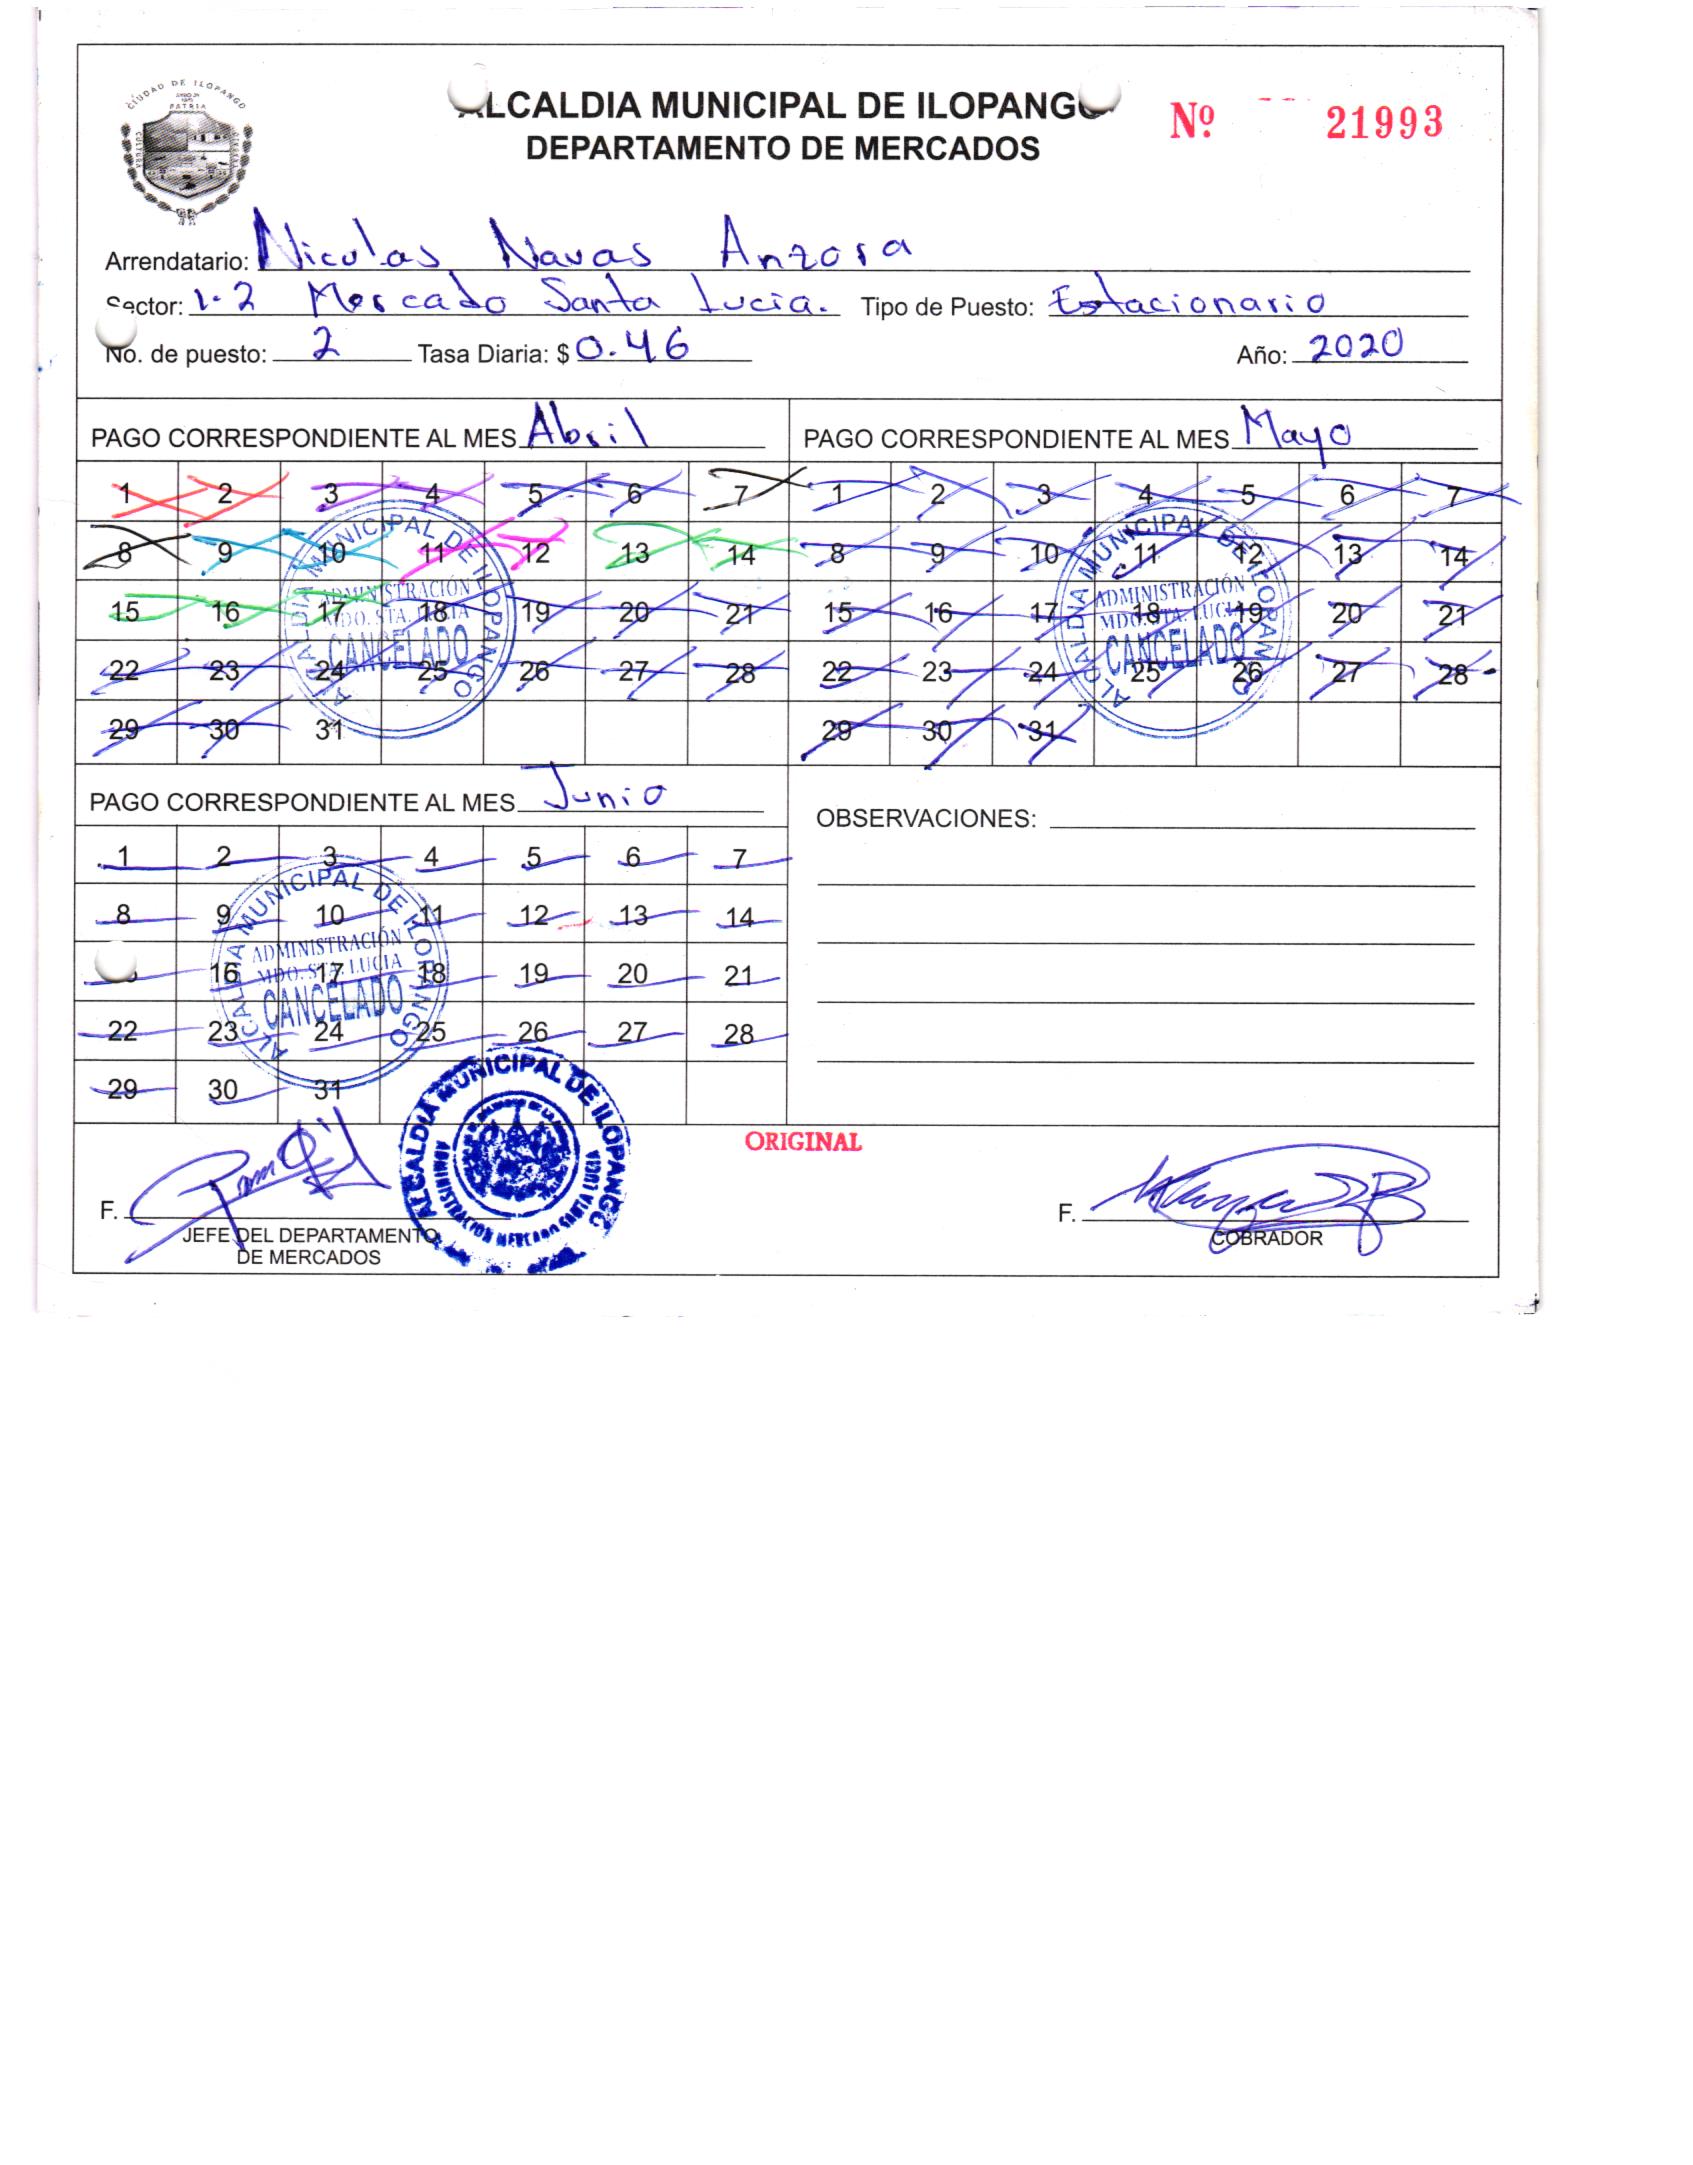 CIUDAD DE ILOPANGO
PATRIA
CULTURA
ALCALDIA MUNICIPAL DE ILOPANGO
DEPARTAMENTO DE MERCADOS
Nº 21993
Arrendatario: Nicolas Navas Anzora
Sector: 1-2 Mercado Santa Lucia. Tipo de Puesto: Estacionario
No. de puesto: 2 Tasa Diaria: $ 0.46 Año: 2020
PAGO CORRESPONDIENTE AL MES Abril PAGO CORRESPONDIENTE AL MES Mayo
1 2 3 4 5 6 7 1 2 3 4 5 6 7
8 9 10 11 12 13 14 8 9 10 11 12 13 14
15 16 17 18 19 20 21 15 16 17 18 19 20 21
22 23 24 25 26 27 28 22 23 24 25 26 27 28
29 30 31 29 30 31
ALCALDIA MUNICIPAL DE ILOPANGO
ADMINISTRACIÓN
MDO. STA. LUCIA
CANCELADO
ALCALDIA MUNICIPAL DE ILOPANGO
ADMINISTRACIÓN
MDO. STA. LUCIA
CANCELADO
PAGO CORRESPONDIENTE AL MES Junio
OBSERVACIONES:
1 2 3 4 5 6 7
8 9 10 11 12 13 14
16 17 18 19 20 21
22 23 24 25 26 27 28
29 30 31
ALCALDIA MUNICIPAL DE ILOPANGO
ADMINISTRACIÓN
MDO. STA. LUCIA
CANCELADO
ALCALDIA MUNICIPAL DE ILOPANGO
ADMINISTRACION MERCADO SANTA LUCIA
ORIGINAL
F.
JEFE DEL DEPARTAMENTO
DE MERCADOS
F.
COBRADOR